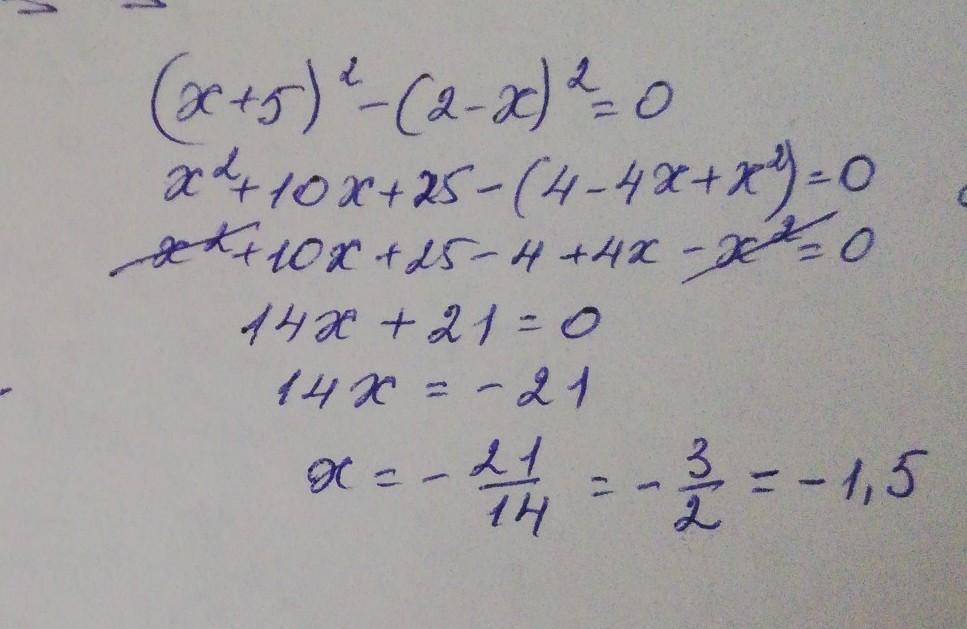 (x+5)² - (2-x)² = 0
x² + 10x + 25 - (4 - 4x + x²) = 0
x² + 10x + 25 - 4 + 4x - x² = 0
14x + 21 = 0
14x = -21
x = - 21/14 = - 3/2 = -1,5